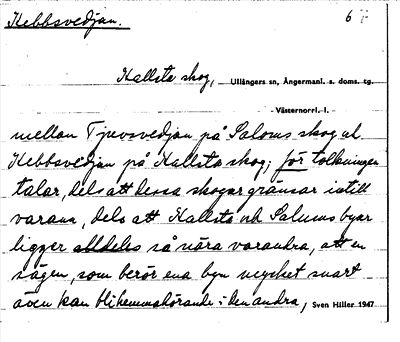 Kebbsvedjan. 6
Kallsta skog, Ullångers sn, Ångermanl. s. doms. tg.
Västernorrl. l.
mellan Tjuvsvedjan på Salums skog och
Kebbsvedjan på Kallsta skog; för tolkningen
talar, dels att dessa skogar gränsar intill
varann, dels att Kallsta och Salums byar
ligger alldeles så nära varandra, att en
sägen, som berör ena byn mycket snart
även kan bli hemmahörande i den andra, Sven Hiller 1947